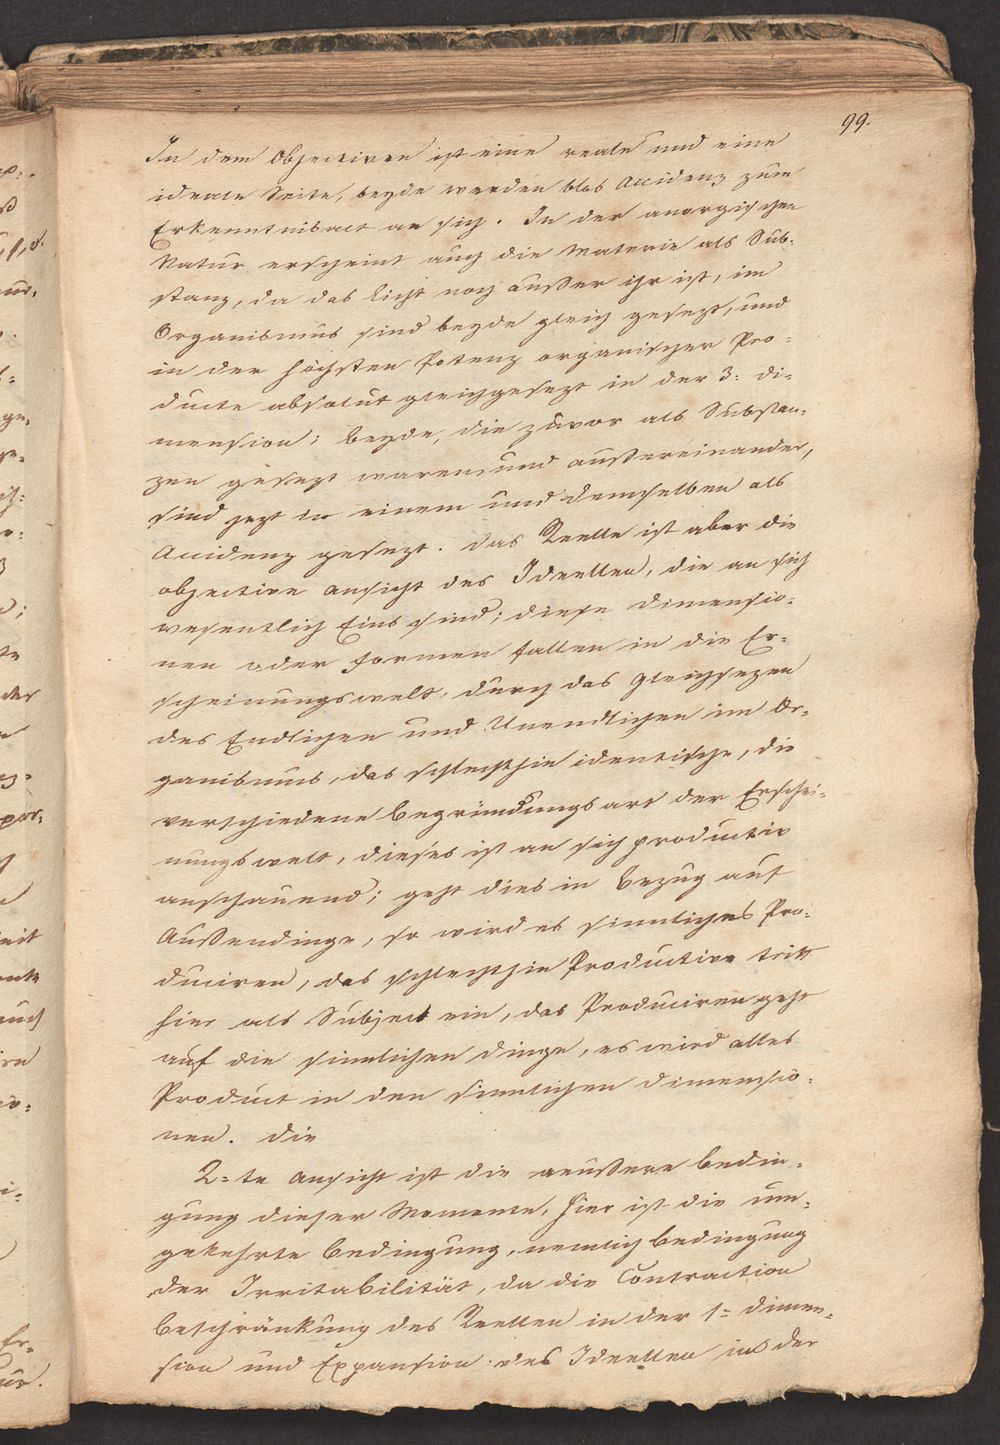 99.
In dem Objectiven ist eine reale und eine
ideale Seite, beyde werden blos Accidenz zum
Erkenntnisact an sich. In der anorgischen
Natur erscheint auch die Materie als Sub-
stanz, da das Licht noch außer ihr ist, im
Organismus sind beyde gleich gesezt, und
in der höchsten Potenz organischer Pro-
ducte absolut gleichgesezt in der 3. Di-
mension; beyde, die zuvor als Substan-
zen gesezt waren, und außereinander,
sind jezt in einem und demselben als
Accidenz gesezt. Das Reelle ist aber die
objective Ansicht des Ideellen, die an sich
wesentlich Eins sind; diese Dimensio-
nen oder Formen fallen in die Er-
scheinungswelt, durch das Gleichsezen
des Endlichen und Unendlichen im Or-
ganismus, das schlechthin identische, die
verschiedene Begründungsart der Erschei-
nungswelt, dieses ist an sich productiv
anschauend; geht dies in Bezug auf
Außendinge, so wird es sinnliches Pro-
duciren, das schlechthin Productive tritt
hier als Subject ein, das Produciren geht
auf die sinnlichen Dinge, es wird alles
Product in den sinnlichen Dimensio-
nen. Die
2-te Ansicht ist die aeußere Bedin-
gung dieser Momente, hier ist die um-
gekehrte Bedingung, nemlich Bedingung
der Irritabilität, da die Contraction
Beschränkung des Reellen in der 1= Dimen-
sion und Expansion des Ideellen in der